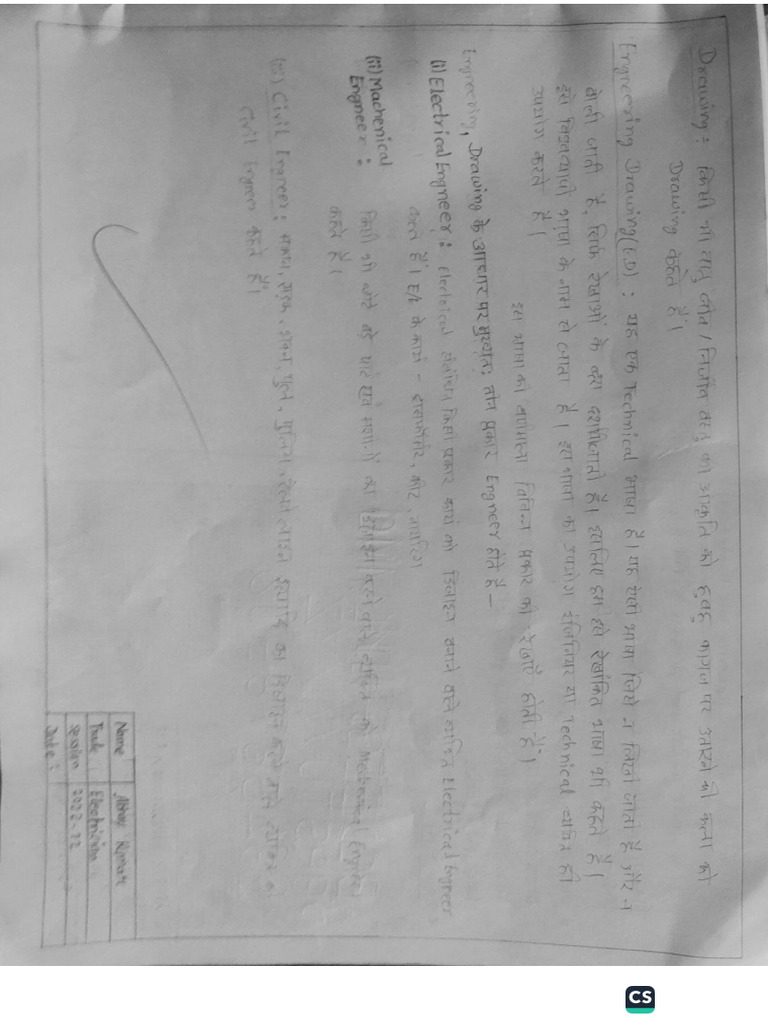 Drawing: किसी भी वस्तु जीव / निर्जीव वस्तु की आकृति को हुबहु कागज पर उतारने की कला को
Drawing कहते हैं।
Engneering Drawing(ED) : यह एक Technical भाषा है। यह ऐसी भाषा जिसे न लिखी जाती है और न
बोली जाती है, सिर्फ रेखाओं के द्वारा दर्शायी जाती है। इसलिए हम इसे रेखांकित भाषा भी कहते हैं।
इसे विश्वव्यापी भाषा के नाम से जाना है। इस भाषा का उपयोग इंजिनियर या Technical व्यक्ति ही
उपयोग करते हैं।
इस भाषा की वर्णमाला विभिन्न प्रकार की रेखाएँ होती हैं।
Engneering, Drawing के आधार पर मुख्यत: तीन प्रकार Engneer होते हैं –
(i) Electrical Engneer : Electrical संबंधित किसी प्रकार कार्य को डिजाइन बनाने वाले व्यक्ति Electrical Engneer
कहते हैं। E/e के कार्य –
(ii) Machenical
Engneer :
किसी भी छोटे बड़े पार्ट एवं मशीनों का डिजाइन करने वाले व्यक्ति को Mechanical Engneer
कहते हैं।
(iii) Civil Engneer : मकान, सड़क, भवन, पुल, पुलिया, रेलवे लाइन इत्यादि का डिजाइन करने वाले व्यक्ति को
Civil Engneer कहते हैं।
Name Abhay Kumar
Trade Electrician
Session 2022-
Date :